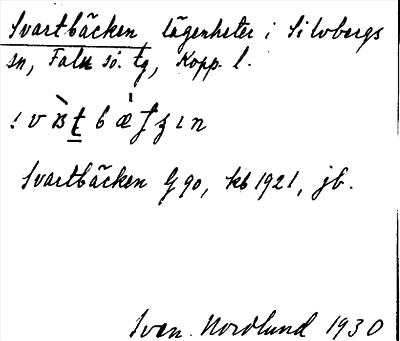 Svartbäcken, lägenheter i Silvbergs
sn, Falu sö. tg, Kopp. l.
Svartbäcken G 90, kb 1921, jb.
Sven Nordlund 1930